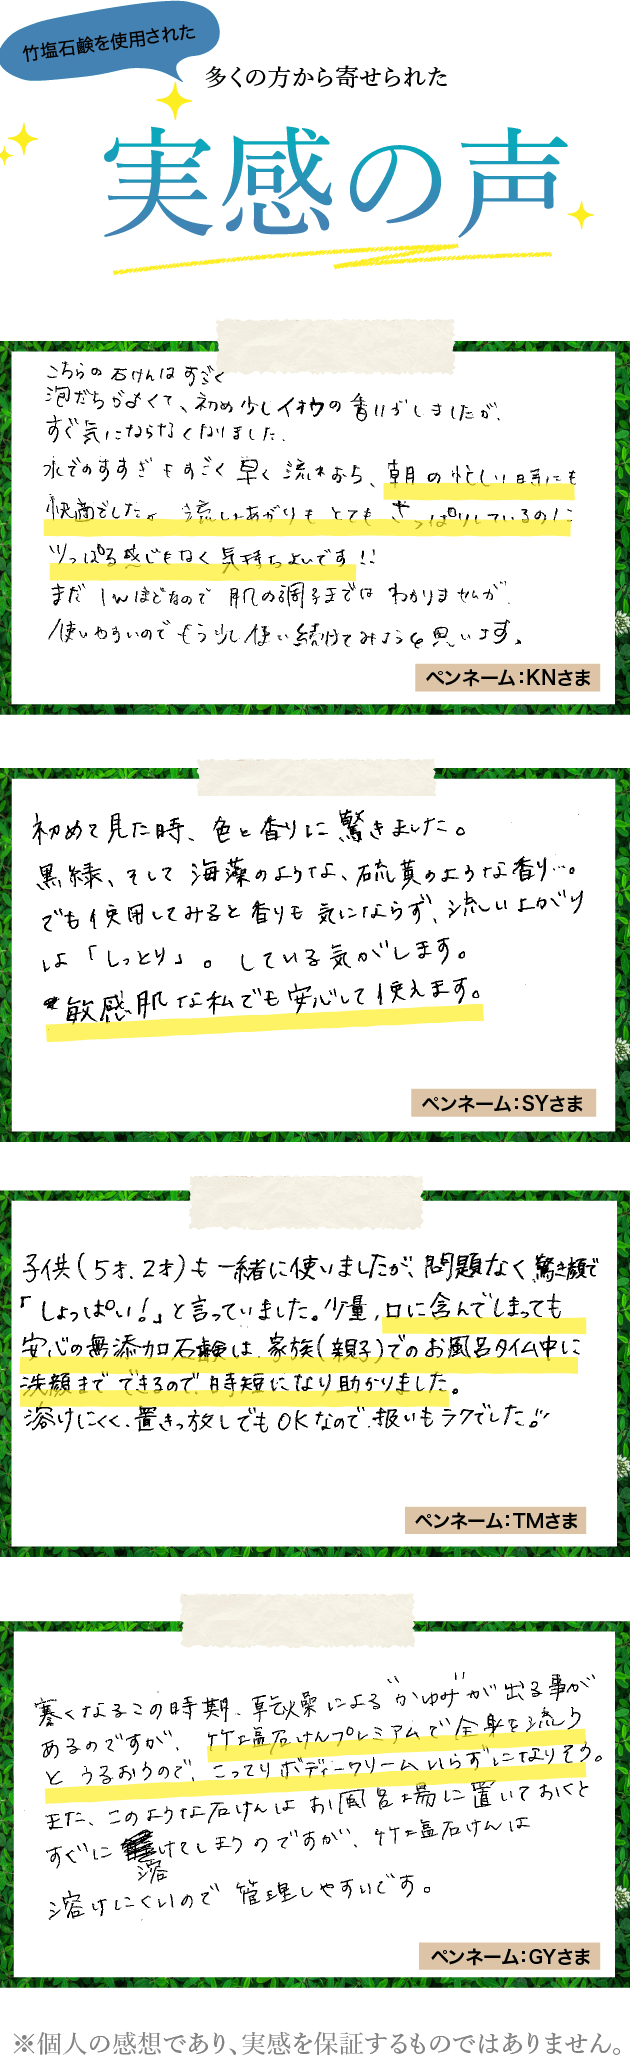 竹塩石鹸を使用された
多くの方から寄せられた
実感の声
こちらの石けんはすごく
泡だちがよくて、初め少しイオウの香りがしましたが、
すぐ気にならなくなりました。
水でのすすぎもすごく早く流れるから、朝の忙しい時にも
快適でした。流しあがりもとてもさっぱりしているのに
ツっぱる感じもなく気持ちよいです!!
まだ1wほどなので肌の調子まではわかりませんが、
使いやすいのでもう少し使い続けてみようと思います。
ペンネーム:KNさま
初めて見た時、色と香りに驚きました。
黒緑、そして海藻のような、硫黄のような香り…。
でも使用してみると香りも気にならず、流し上がり
は「しっとり」。している気がします。
敏感肌な私でも安心して使えます。
ペンネーム:SYさま
子供(5才、2才)も一緒に使いましたが、問題なく、驚き顔で
「しょっぱい!」と言っていました。少量、口に含んでしまっても
安心の無添加石鹸は、家族(親子)でのお風呂タイム中に
洗顔までできるので、時短になり助かりました。
溶けにくく、置きっ放しでもOKなので、扱いもラクでした!!
ペンネーム:TMさま
寒くなるこの時期、乾燥による"かゆみ"が出る事が
あるのですが、竹塩石けんプレミアムで全身を流う
とうるおうので、こってりボディークリームいらずになりそう。
また、このような石けんはお風呂場に置いておくと
すぐに溶けてしまうのですが、竹塩石けんは
溶けにくいので管理しやすいです。
ペンネーム:GYさま
※個人の感想であり、実感を保証するものではありません。